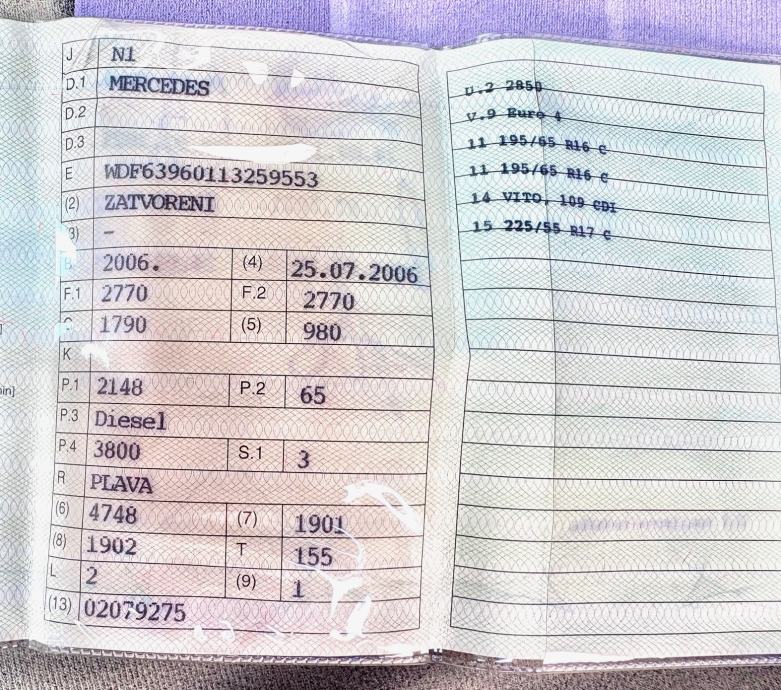 J N1
D.1 MERCEDES
D.2
D.3
E WDF63960113259553
(2) ZATVORENI
3) -
2006. (4) 25.07.2006
F.1 2770 F.2 2770
1790 (5) 980
K
P.1 2148 P.2 65
P.3 Diesel
P.4 3800 S.1 3
R PLAVA
(6) 4748 (7) 1901
(8) 1902 T 155
L 2 (9) 1
(13) 02079275
]
in]
U.2 2850
V.9 Euro 4
11 195/65 R16 C
11 195/65 R16 C
14 VITO, 109 CDI
15 225/55 R17 C